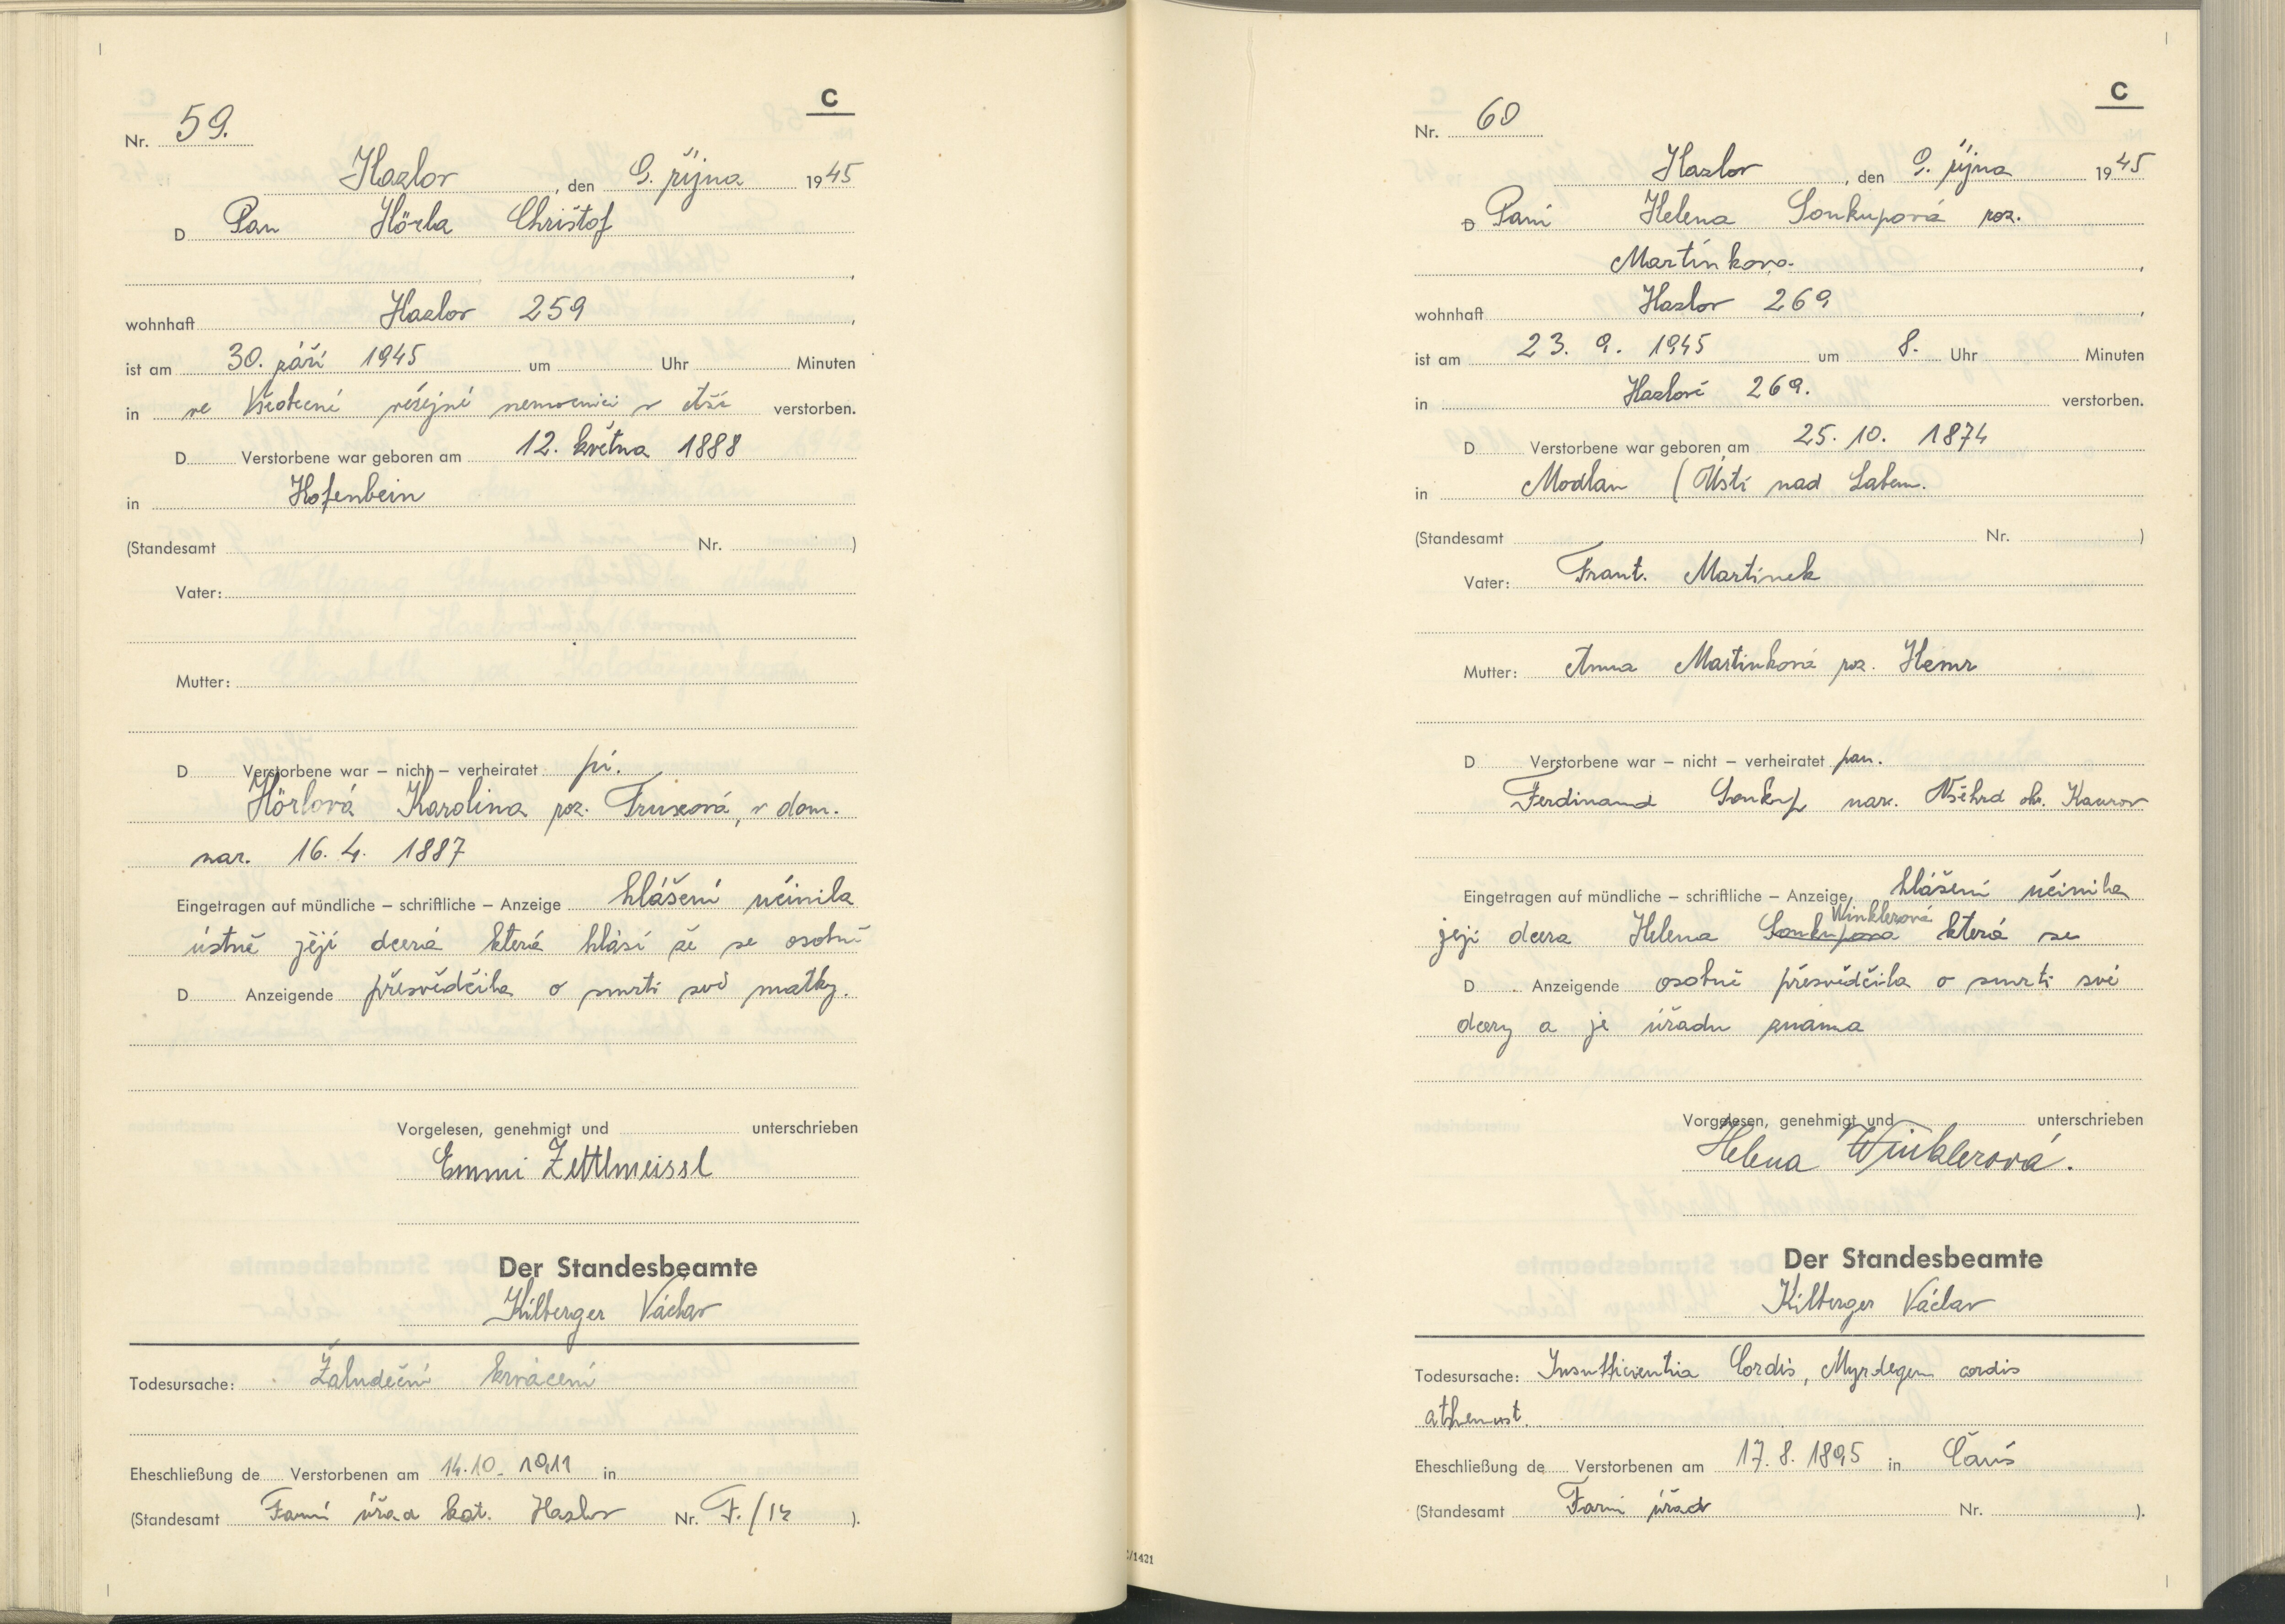 C
Nr. 59.
Hazlov, den 9. října 1945
D Pan Hörla Christof
wohnhaft Hazlov 259,
ist am 30. září 1945 um Uhr Minuten
in ve Všeobecné veřejné nemocnici v Aši verstorben.
D Verstorbene war geboren am 12. května 1888
in Hofenbein
(Standesamt Nr. )
Vater:
Mutter:
D Verstorbene war – nicht – verheiratet pí.
Hörlová Karolina roz. v dom.
nar. 16. 4. 1887
Eingetragen auf mündliche – schriftliche – Anzeige hlášení učinila
ústně její dcerá která hlásí že se osobně
D Anzeigende přesvědčila o smrti své matky.
Vorgelesen, genehmigt und unterschrieben
Emmi Zettlmeissl
Der Standesbeamte
Kilberger Václav
Todesursache: Žaludeční krvácení
Eheschließung de Verstorbenen am 14. 10. 1911 in
(Standesamt Farní úřad kat. Hazlov Nr. F./14 ).
C
Nr. 60
Hazlov, den 9. října 1945
D Paní Helena Soukupová roz.
Martínkova.
wohnhaft Hazlov 269,
ist am 23. 9. 1945 um 8. Uhr Minuten
in Hazlově 269. verstorben.
D Verstorbene war geboren am 25. 10. 1874
in Modlan (Ústí nad Labem.
(Standesamt Nr. )
Vater: Frant. Martínek
Mutter: Anna Martinková roz. Hemr
D Verstorbene war – nicht – verheiratet pan.
Ferdinand Soukup nar. Všehrd ok.
Eingetragen auf mündliche – schriftliche – Anzeige, hlášení učinila
Winklerová
její dcera Helena Soukupova která se
D Anzeigende osobně přesvědčila o smrti své
dcery a je úřadu známa
Vorgelesen, genehmigt und unterschrieben
Helena Winklerová.
Der Standesbeamte
Kilberger Václav
Todesursache: Insufficientia Cordis, cordis
Eheschließung de Verstorbenen am 17. 8. 1895 in
(Standesamt Farní úřad Nr. ).
C/1421